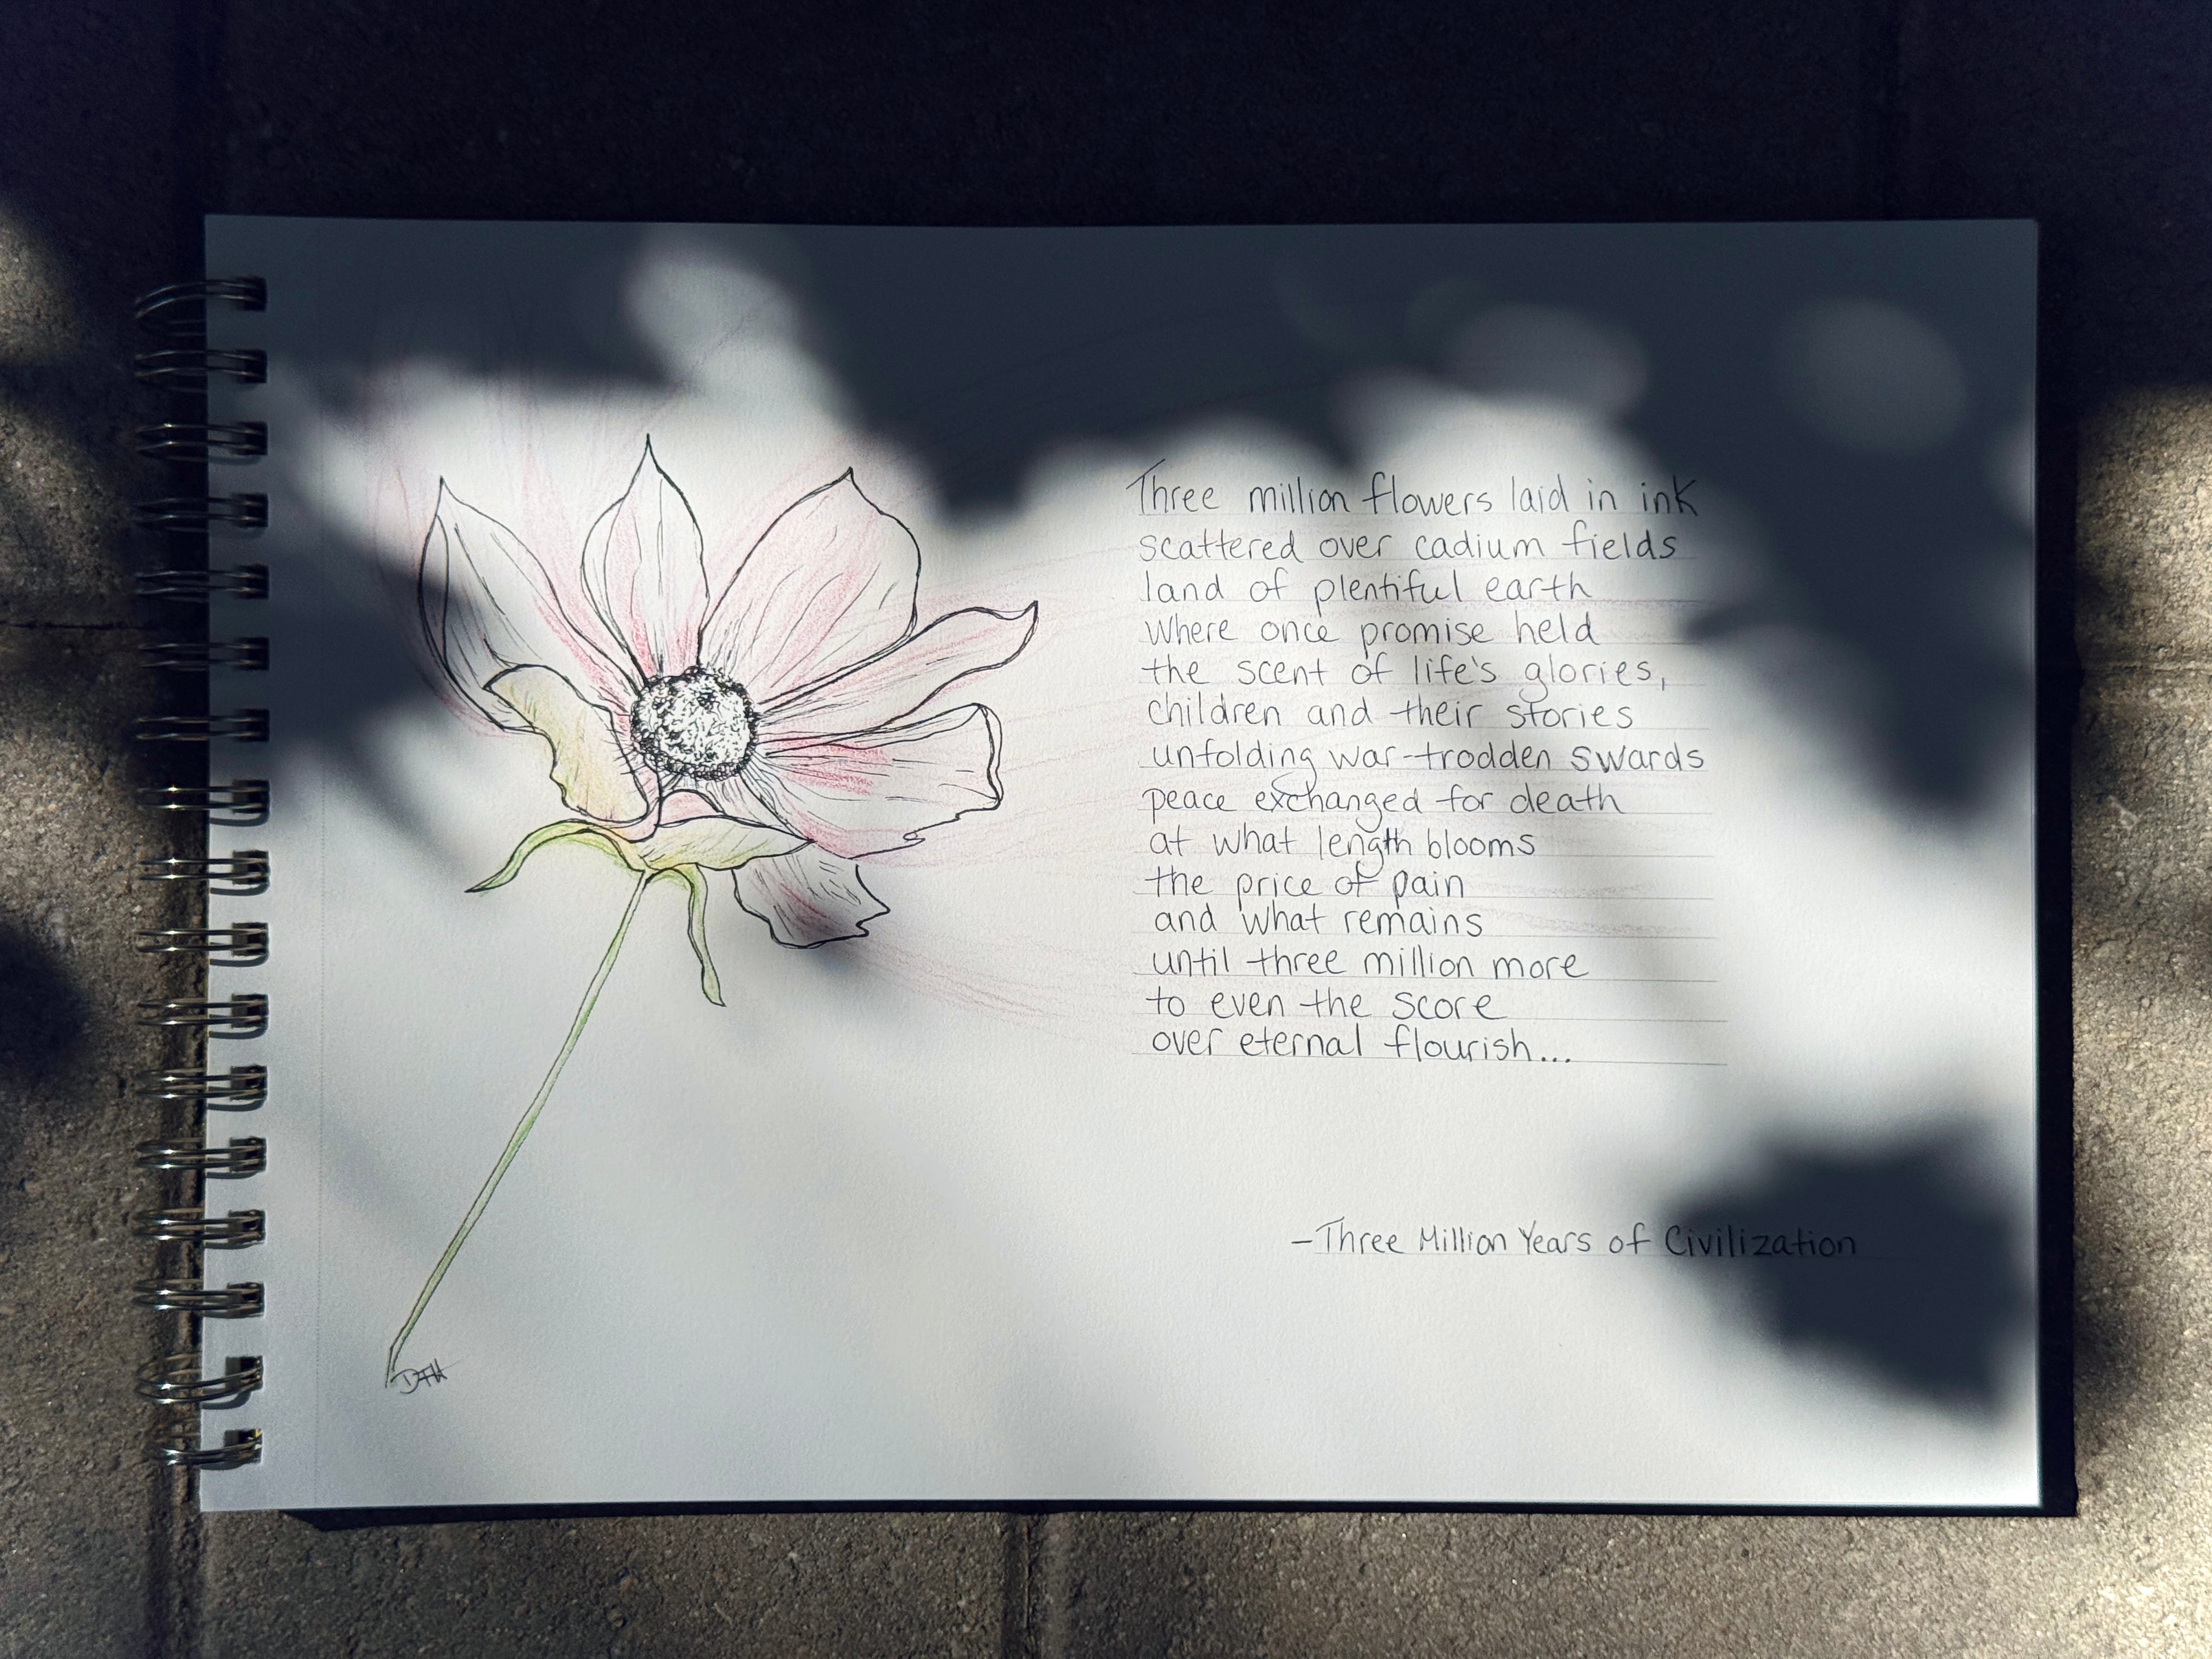 Three million flowers laid in ink
scattered over cadium fields
land of plentiful earth
where once promise held
the scent of life's glories,
children and their stories
unfolding war-trodden swards
peace exchanged for death
at what length blooms
the price of pain
and what remains
until three million more
to even the score
over eternal flourish...
-Three Million Years of Civilization